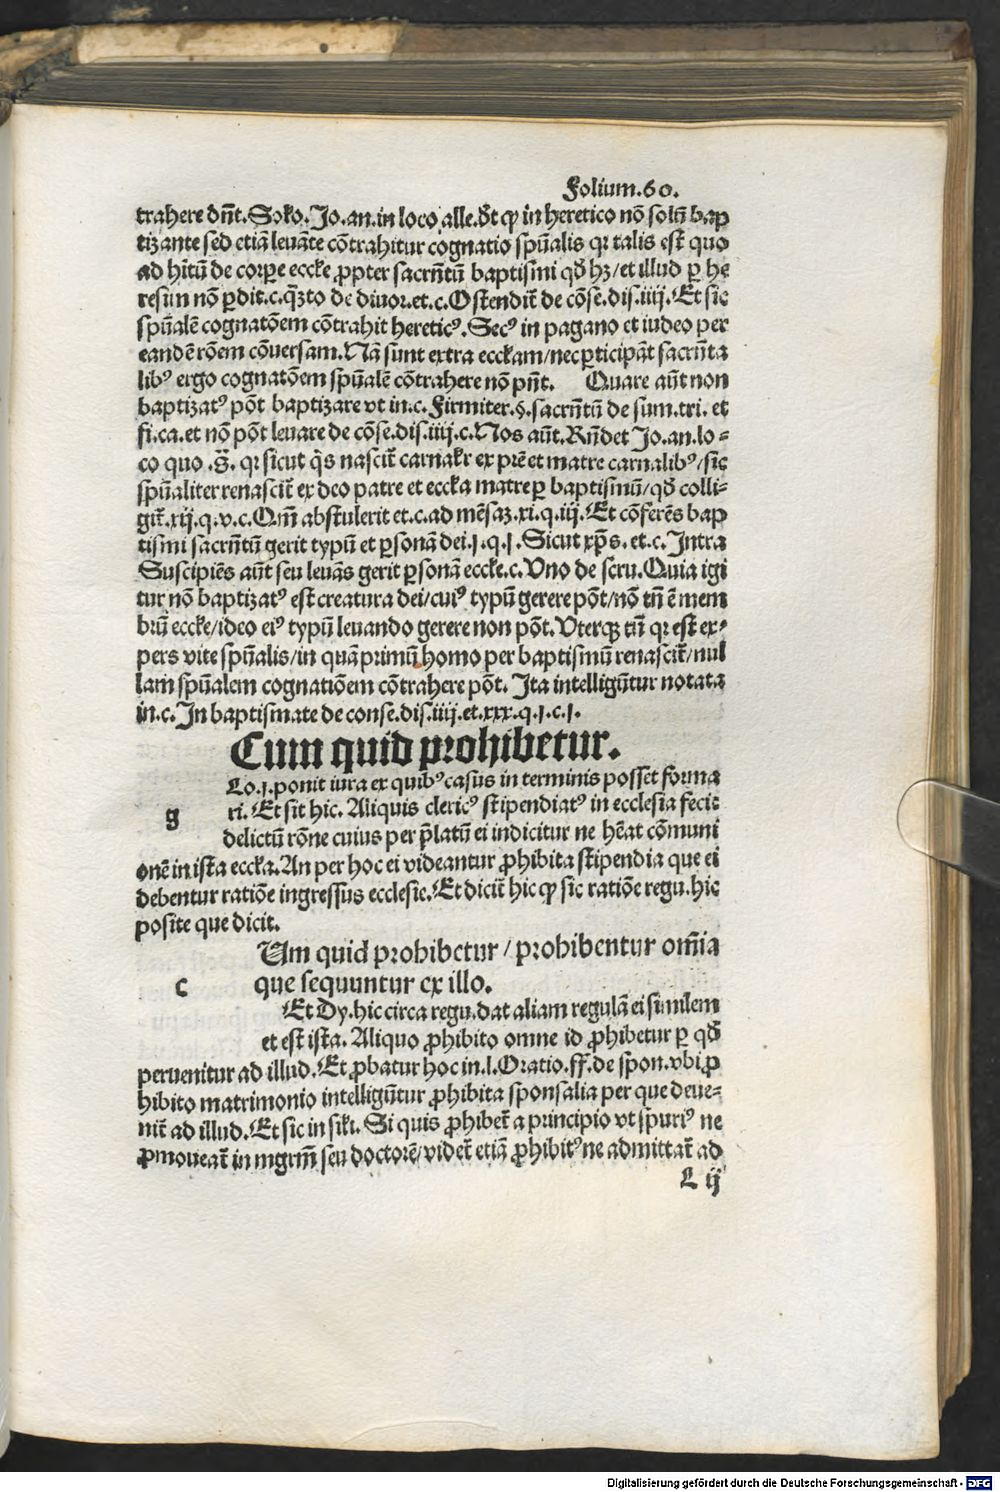 Folium.60.
trahere dñt. Solo. Jo. an. in loco alle. dt ꝙ in heretico nõ solũ bap
tizante sed etiã leuãte cõtrahitur cognatio spũalis qꝛ talis est quo
ad hitũ de corpe eccłe ꝓpter sacrñtũ baptismi qd̃ hꝫ/et illud ꝑ he
resim nõ ꝑdit.c.q̃zto de diuor.et.c.Ostendit̃ de cõse.dis.iiij. Et sic
spũalẽ cognatõem cõtrahit heretic⁹. Sec⁹ in pagano et iudeo per
eandẽ rõem cõuersam. Nã sunt extra eccłam/nec ꝑticipãt sacrñta
lib⁹ ergo cognatõem spũalẽ cõtrahere nõ pñt. Quare aũt non
baptizat⁹ põt baptizare vt in.c. Firmiter.§.sacrñtũ de sum.tri. et
fi.ca.et nõ põt leuare de cõse.dis.iiij.c.Nos aũt. Rñdet Jo.an.lo=
co quo .s̃. qꝛ sicut q̃s nascit̃ carnalꝛ ex prẽ et matre carnalib⁹/sic
spũaliter renascit̃ ex deo patre et eccła matre ꝑ baptismũ/qd̃ colli=
git̃.xij.q.v.c.Q̃m̃ abstulerit et.c.ad mẽsaꝫ.xi.q.iij. Et cõferẽs bap
tismi sacrñtũ gerit typũ et ꝑsonã dei.j.q.j. Sicut xp̃s. et.c. Intra
Suscipiẽs aũt seu leuãs gerit ꝑsonã eccłe.c. Vno de scru. Quia igi
tur nõ baptizat⁹ est creatura dei/cui⁹ typũ gerere põt/nõ tñ ẽ mem
brũ eccłe/ideo ei⁹ typũ leuando gerere non põt. Vterqꝫ tñ qꝛ est ex=
pers vite spũalis/in quã primũ homo per baptismũ renascit̃/nul
lam spũalem cognatiõem cõtrahere põt. Ita intelligũtur notata
in.c. In baptismate de conse.dis.iiij.et.xxx.q.j.c.j.
Cum quid prohibetur.
Lo.j.ponit iura ex quib⁹ casus in terminis posset forma
g ri. Et sit hic. Aliquis cleric⁹ stipendiat⁹ in ecclesia fecit
delictũ rõne cuius per p̃latũ ei indicitur ne hẽat cõmuni
onẽ in ista eccła. An per hoc ei videantur ꝓhibita stipendia que ei
debentur ratiõe ingressus ecclesie. Et dicit̃ hic ꝙ sic ratiõe regu. hic
posite que dicit.
Um quid prohibetur/prohibentur om̃ia
c que sequuntur ex illo.
Et Dy. hic circa regu. dat aliam regulã ei similem
et est ista. Aliquo ꝓhibito omne id ꝓhibetur ꝑ qd̃
peruenitur ad illud. Et ꝓbatur hoc in.l.Oratio.ff.de spon.vbi ꝓ
hibito matrimonio intelligũtur ꝓhibita sponsalia per que deue=
nit̃ ad illud. Et sic in siłi. Si quis ꝓhibet̃ a principio vt spuri⁹ ne
ꝓmoueat̃ in mgrm̃ seu doctorẽ/videt̃ etiã ꝓhibit⁹ ne admittat̃ ad
L ij
Digitalisierung gefördert durch die Deutsche Forschungsgemeinschaft - DFG